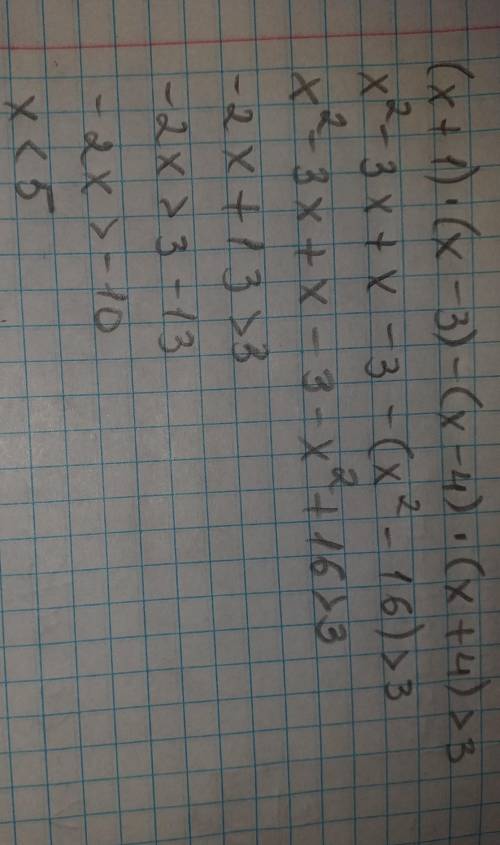 (x + 1) · (x - 3) - (x - 4) · (x + 4) > 3
x² - 3x + x - 3 - (x² - 16) > 3
x² - 3x + x - 3 - x² + 16 > 3
-2x + 13 > 3
-2x > 3 - 13
-2x > -10
x < 5